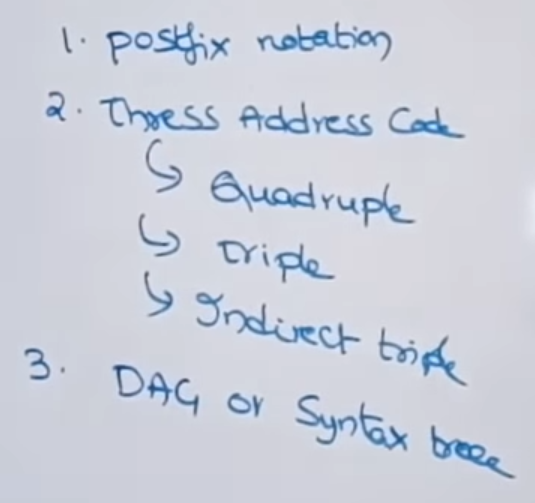 1. postfix notation
2. Thress Address Code
↳ Quadruple
↳ Triple
↳ Indirect triple
3. DAG or Syntax tree